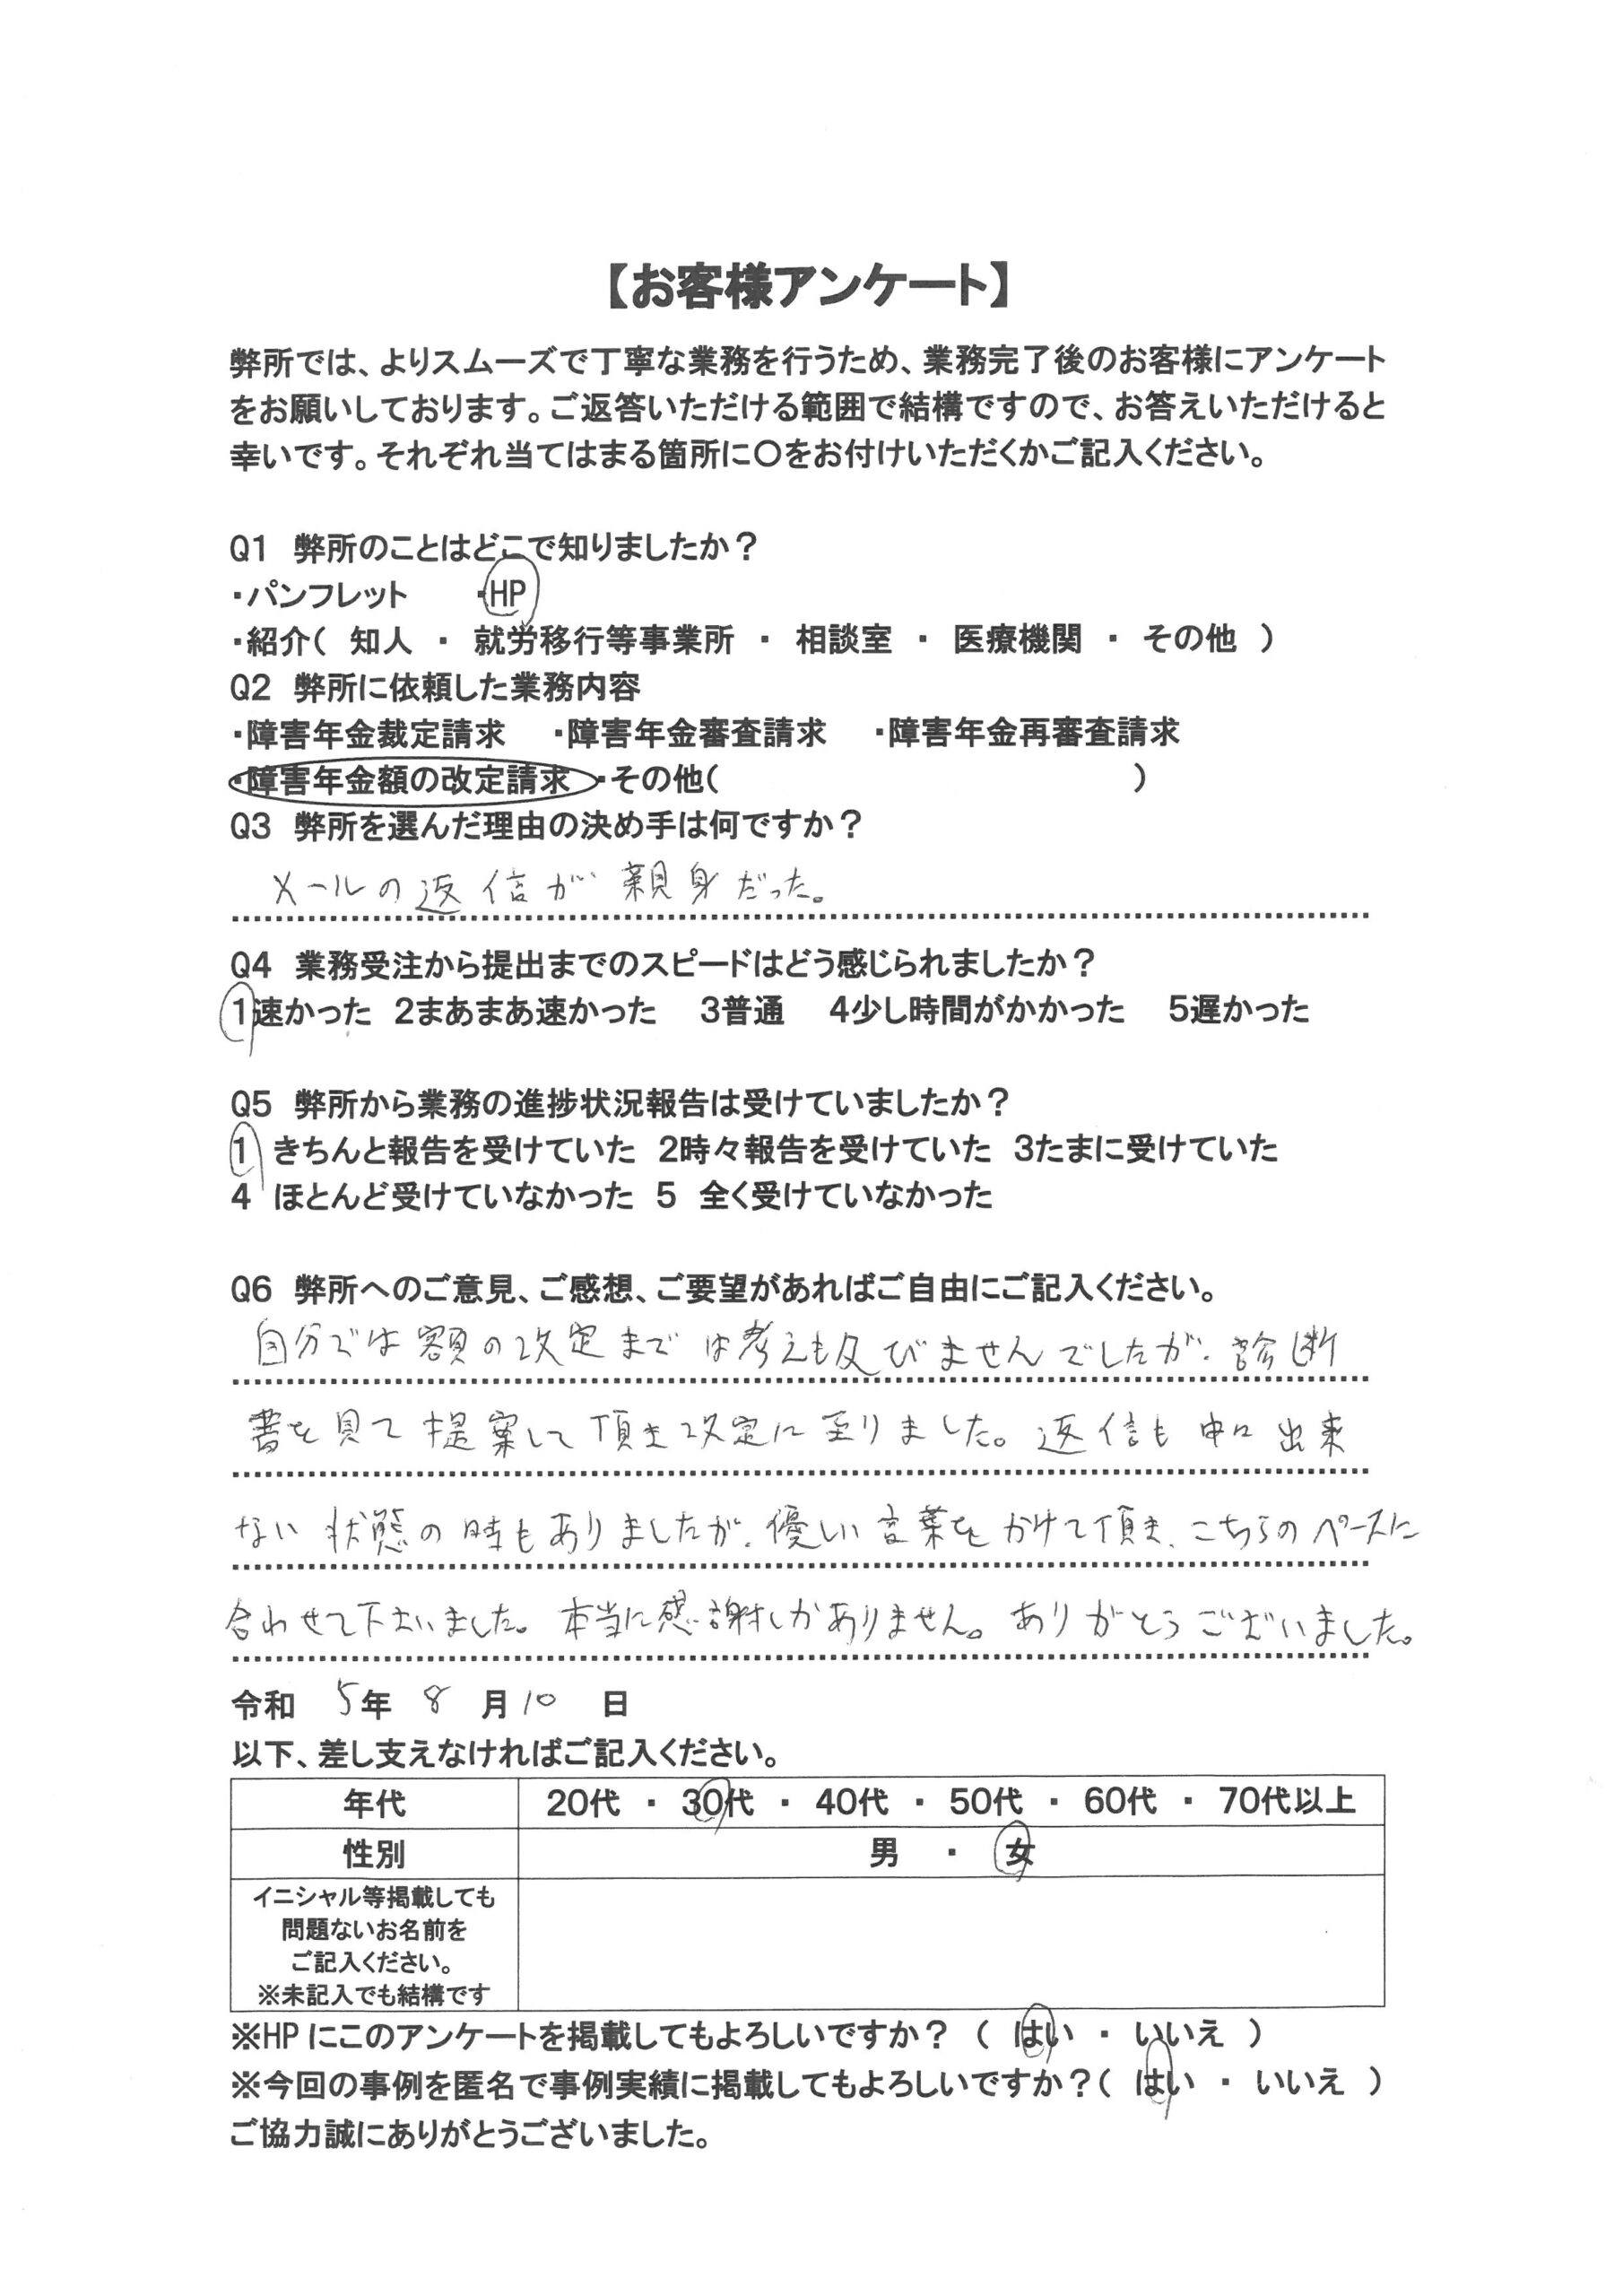 【お客様アンケート】
弊所では、よりスムーズで丁寧な業務を行うため、業務完了後のお客様にアンケート
をお願いしております。ご返答いただける範囲で結構ですので、お答えいただけると
幸いです。それぞれ当てはまる箇所に〇をお付けいただくかご記入ください。
Q1 弊所のことはどこで知りましたか？
・パンフレット ・HP
・紹介（ 知人 ・ 就労移行等事業所 ・ 相談室 ・ 医療機関 ・ その他 ）
Q2 弊所に依頼した業務内容
・障害年金裁定請求 ・障害年金審査請求 ・障害年金再審査請求
・障害年金額の改定請求 ・その他（ ）
Q3 弊所を選んだ理由の決め手は何ですか？
メールの返信が親身だった。
Q4 業務受注から提出までのスピードはどう感じられましたか？
1速かった 2まあまあ速かった 3普通 4少し時間がかかった 5遅かった
Q5 弊所から業務の進捗状況報告は受けていましたか？
1 きちんと報告を受けていた 2時々報告を受けていた 3たまに受けていた
4 ほとんど受けていなかった 5 全く受けていなかった
Q6 弊所へのご意見、ご感想、ご要望があればご自由にご記入ください。
自分では額の改定までは考えも及びませんでしたが、診断
書を見て提案して頂き改定に至りました。返信も中々出来
ない状態の時もありましたが、優しい言葉をかけて頂き、こちらのペースに
合わせて下さいました。本当に感謝しかありません。ありがとうございました。
令和 5年 8 月 10 日
以下、差し支えなければご記入ください。
年代 20代 ・ 30代 ・ 40代 ・ 50代 ・ 60代 ・ 70代以上
性別 男 ・ 女
イニシャル等掲載しても
問題ないお名前を
ご記入ください。
※未記入でも結構です
※HPにこのアンケートを掲載してもよろしいですか？（ はい ・ いいえ ）
※今回の事例を匿名で事例実績に掲載してもよろしいですか？（ はい ・ いいえ ）
ご協力誠にありがとうございました。